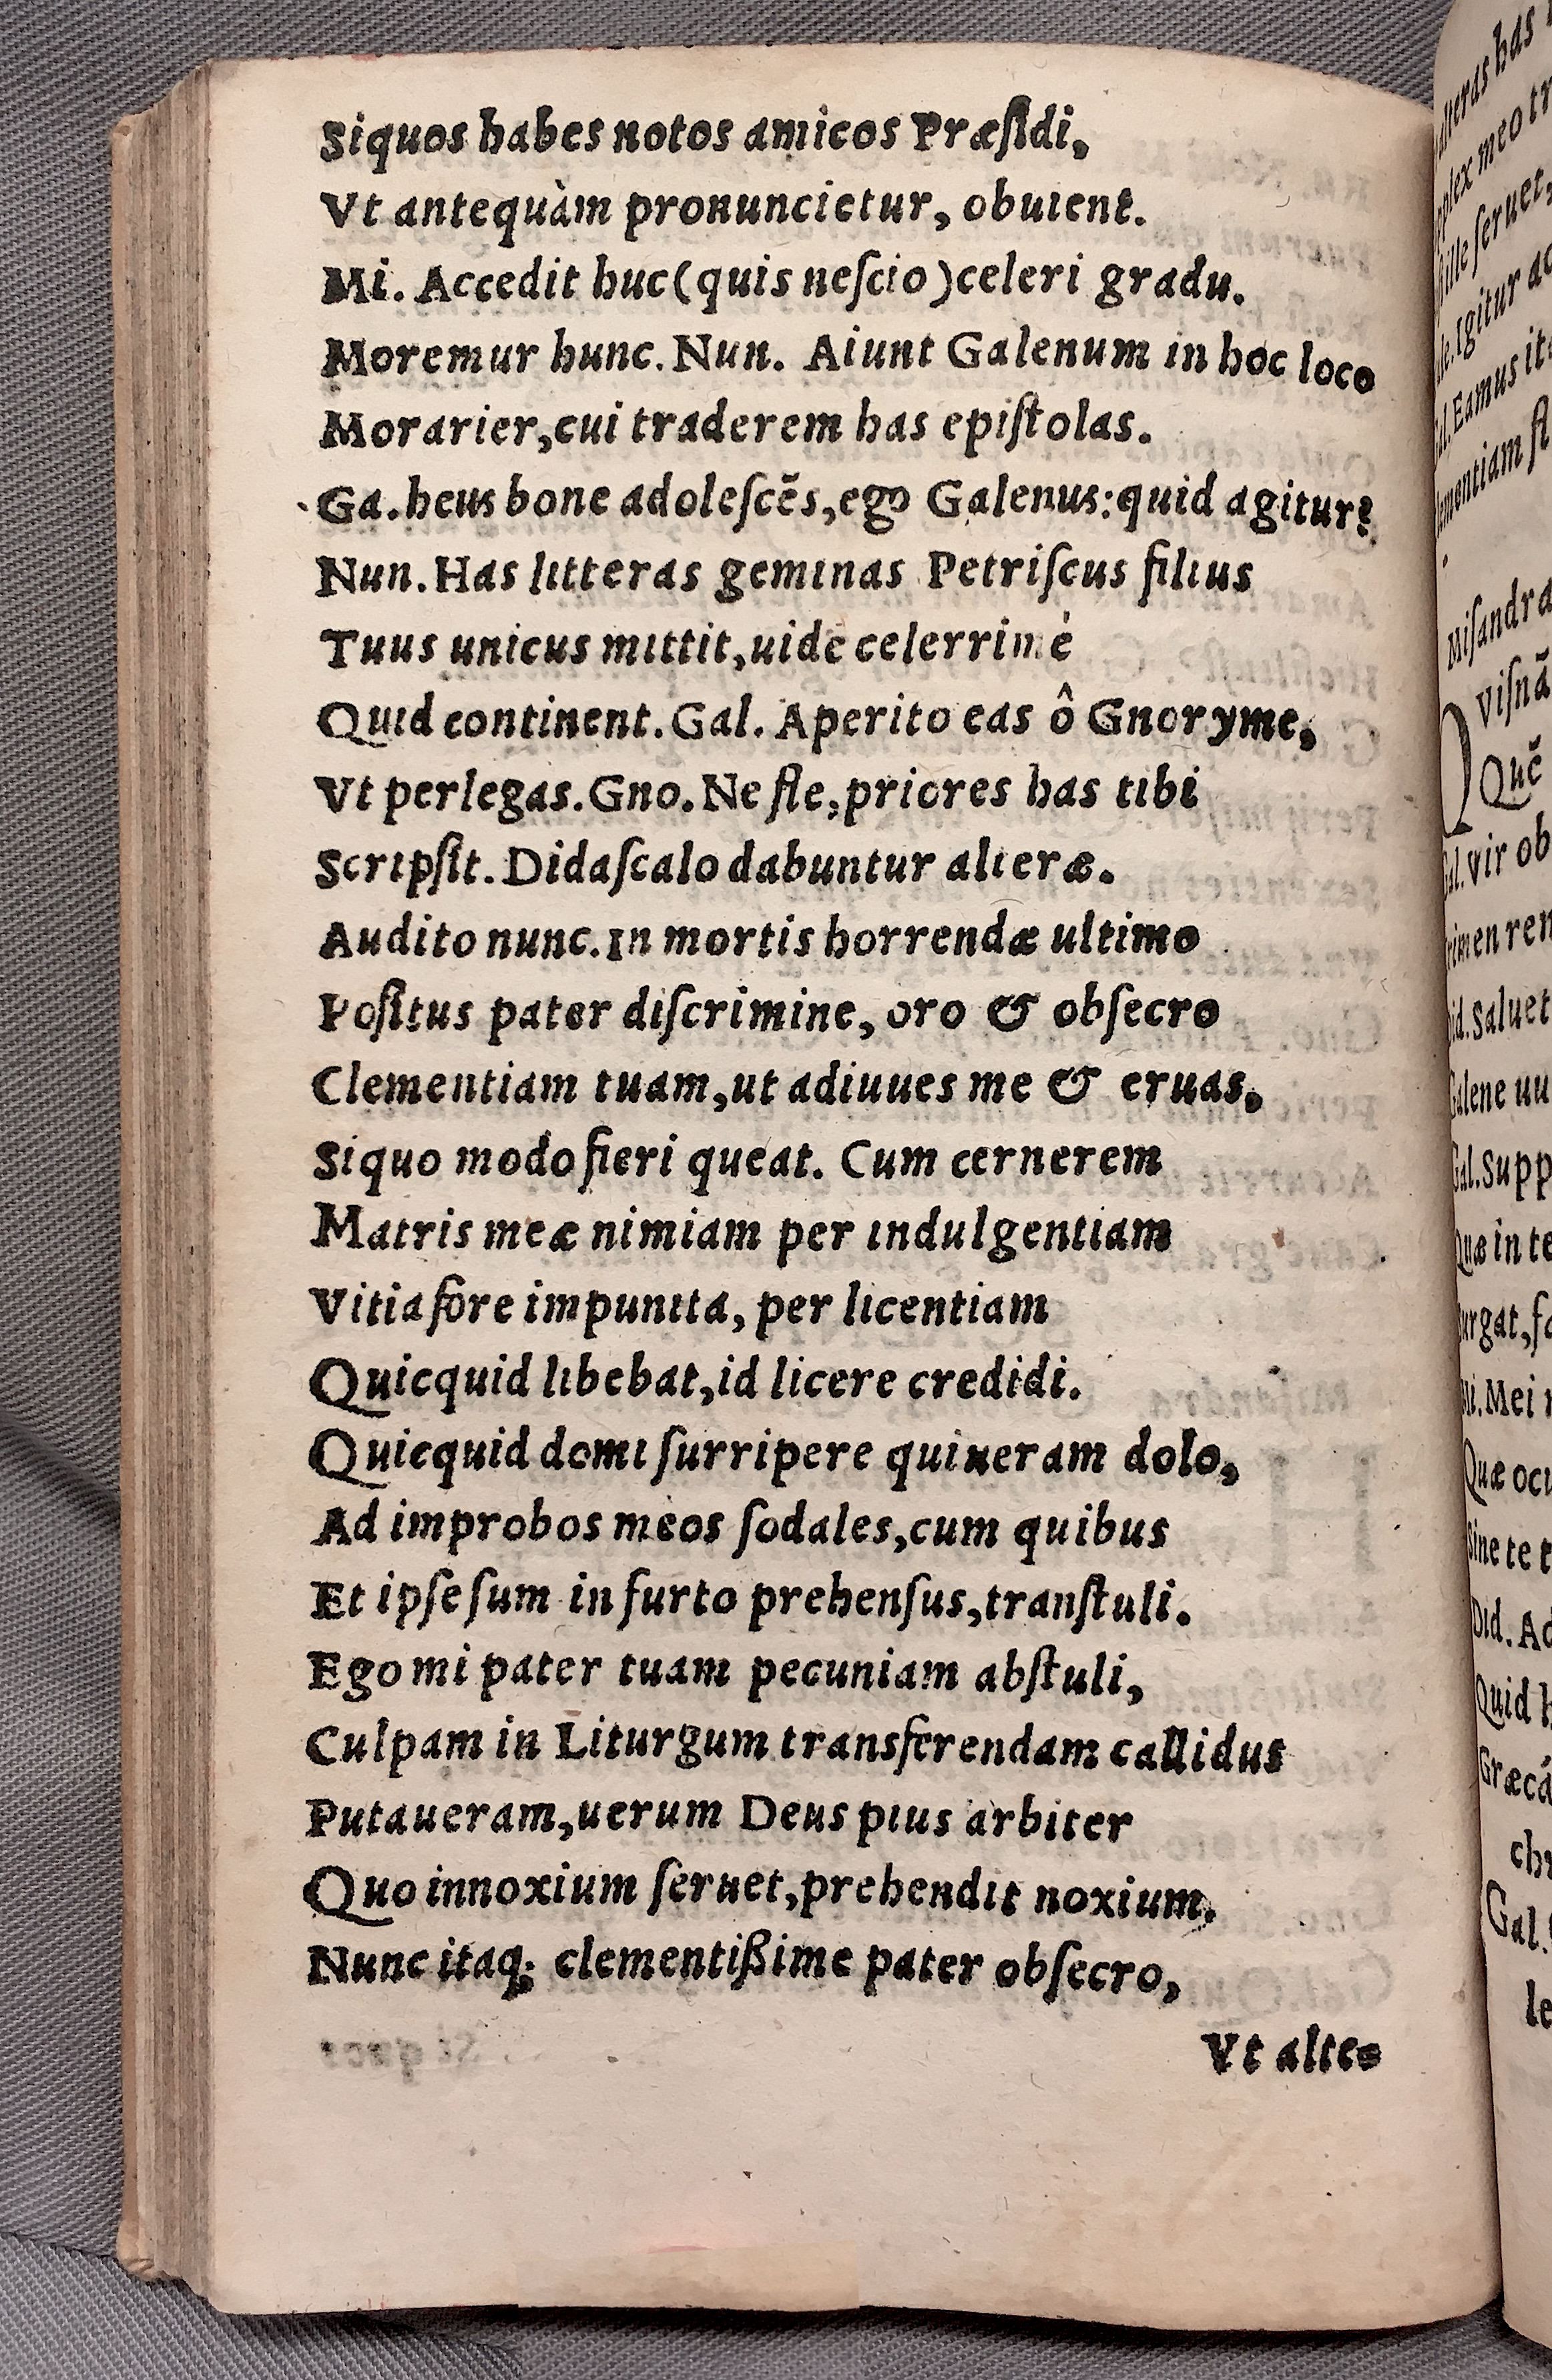 Siquos habes notos amicos Præsidi,
Vt antequàm pronuncietur, obuient.
Mi. Accedit huc (quis nescio) celeri gradu.
Moremur hunc. Nun. Aiunt Galenum in hoc loco
Morarier, cui traderem has epistolas.
Ga. heus bone adolescẽs, ego Galenus: quid agitur?
Nun. Has litteras geminas Petriscus filius
Tuus unicus mittit, uide celerrimè
Quid continent. Gal. Aperito eas ô Gnoryme,
Vt perlegas. Gno. Ne fle, priores has tibi
Scripsit. Didascalo dabuntur alteræ.
Audito nunc. In mortis horrendæ ultimo
Positus pater discrimine, oro & obsecro
Clementiam tuam, ut adiuues me & eruas,
Siquo modo fieri queat. Cum cernerem
Matris meæ nimiam per indulgentiam
Vitia fore impunita, per licentiam
Quicquid libebat, id licere credidi.
Quicquid domi surripere quiueram dolo,
Ad improbos meos sodales, cum quibus
Et ipse sum in furto prehensus, transtuli.
Ego mi pater tuam pecuniam abstuli,
Culpam in Liturgum transferendam callidus
Putaueram, uerum Deus pius arbiter
Quo innoxium seruet, prehendit noxium.
Nunc itaq; clementißime pater obsecro,
Vt alte-
alteras has
meo
ille seruet,
Igitur
Eamus
Misandra
Visnã
Quẽ
Gal. Vir ob
Did. Saluet
Galene uu
Gal. Supp
Quæ in te
Mi. Mei
Quæ ocu
Sine te
Did. Ad
Quid
Græcã
Gal.